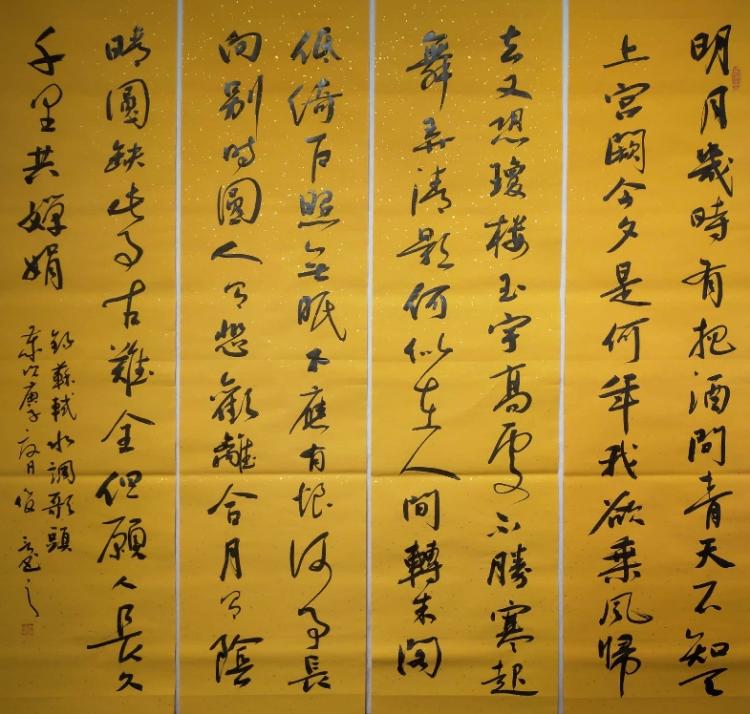 明月幾時有把酒問青天不知天
上宮闕今夕是何年我欲乘風歸
去又恐瓊樓玉宇高處不勝寒起
舞弄清影何似在人間轉朱閣
低綺戶照無眠不應有恨何事長
向別時圓人有悲歡離合月有陰
晴圓缺此事古難全但願人長久
千里共嬋娟
錄蘇軾水調歌頭
歲次庚子夏月俊